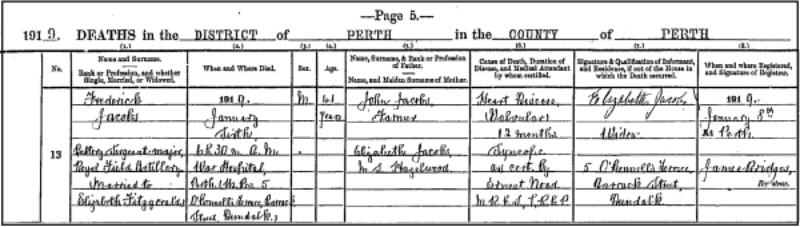 —Page 5.—
1919. DEATHS in the DISTRICT of PERTH in the COUNTY of PERTH
(1.) (2.) (3.) (4.) (5.) (6.) (7.) (8.)
No.
Name and Surname.
Rank or Profession, and whether Single, Married, or Widowed.
When and Where Died.
Sex.
Age.
Name, Surname, & Rank or Profession of Father.
Name, and Maiden Surname of Mother.
Cause of Death, Duration of Disease, and Medical Attendant by whom certified.
Signature & Qualification of Informant, and Residence, if out of the House in which the Death occurred.
When and where Registered, and Signature of Registrar.
13
Frederick
Jacobs
Battery Sergeant-major,
Royal Field Artillery
Married to
Elizabeth Fitzgerald
1919,
January
Sixth
6h 30m A.M.
War Hospital,
Perth
5
O'Connell's Terrace, Barrack
Street, Dundalk
M
41
years
John Jacobs,
Farmer
Elizabeth Jacobs
M.S. Hazelwood
Heart Disease,
Valvular
12 months
Syncope
as cert. by
Ernest
M.R.C.S., L.R.C.P.
Elizabeth Jacobs
Widow
5 O'Connell's Terrace,
Barrack Street,
Dundalk
1919,
January 8th
At Perth
James Bridges,
Registrar.